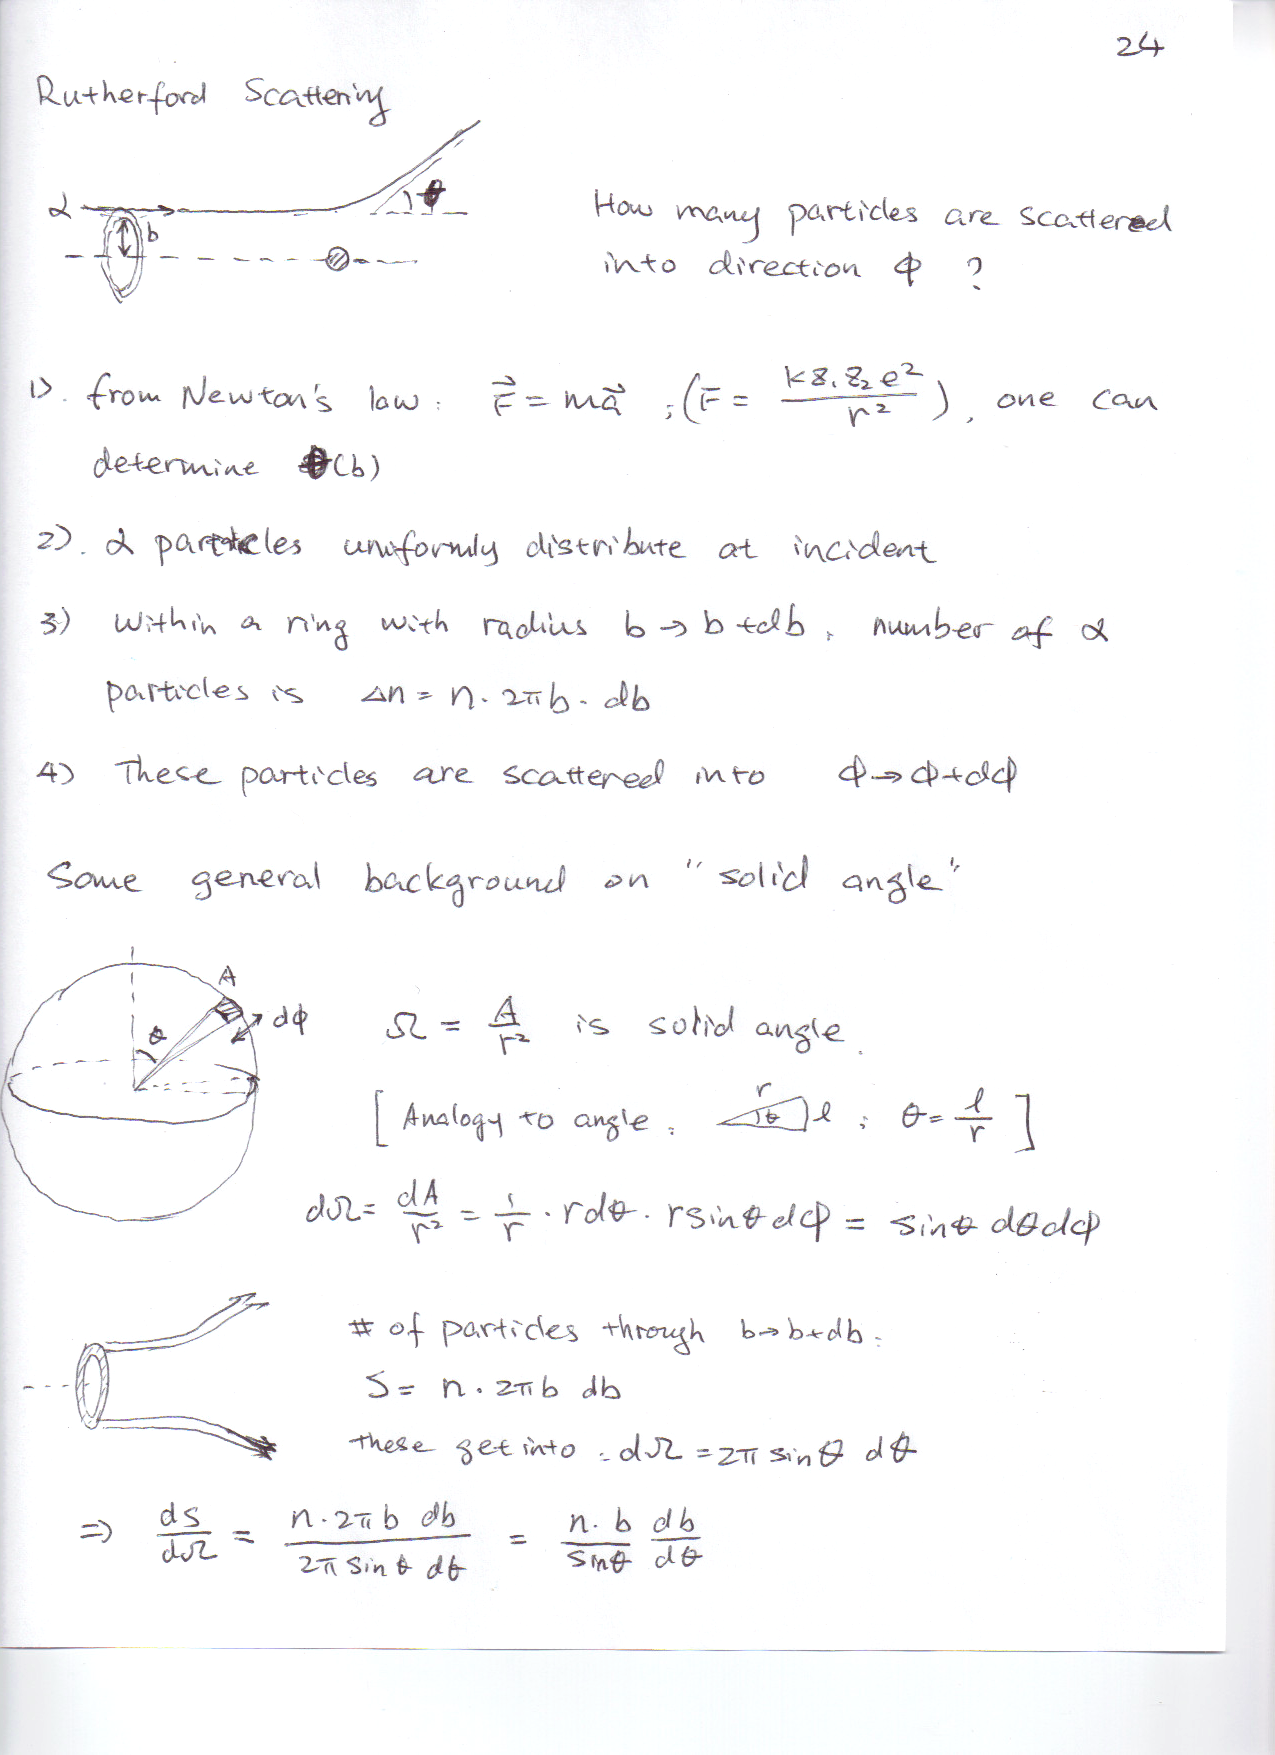 24
Rutherford Scattering
α
b
θ
How many particles are scattered
into direction φ ?
1). from Newton's law : F⃗ = ma⃗ ; (F = kz₁z₂e²/r²), one can
determine θ(b)
2). α particles uniformly distribute at incident
3) Within a ring with radius b → b+db, number of α
particles is Δn = n · 2πb · db
4) These particles are scattered into φ → φ+dφ
Some general background on "solid angle"
A
θ
dφ
Ω = A/r² is solid angle.
[ Analogy to angle, r θ l ; θ = l/r ]
dΩ = dA/r² = 1/r · rdθ · rsinθdφ = sinθ dθdφ
# of particles through b→b+db :
S = n · 2πb db
these get into : dΩ = 2π sinθ dθ
⇒ ds/dΩ = n·2πb db / 2π sinθ dθ = n·b/sinθ db/dθ